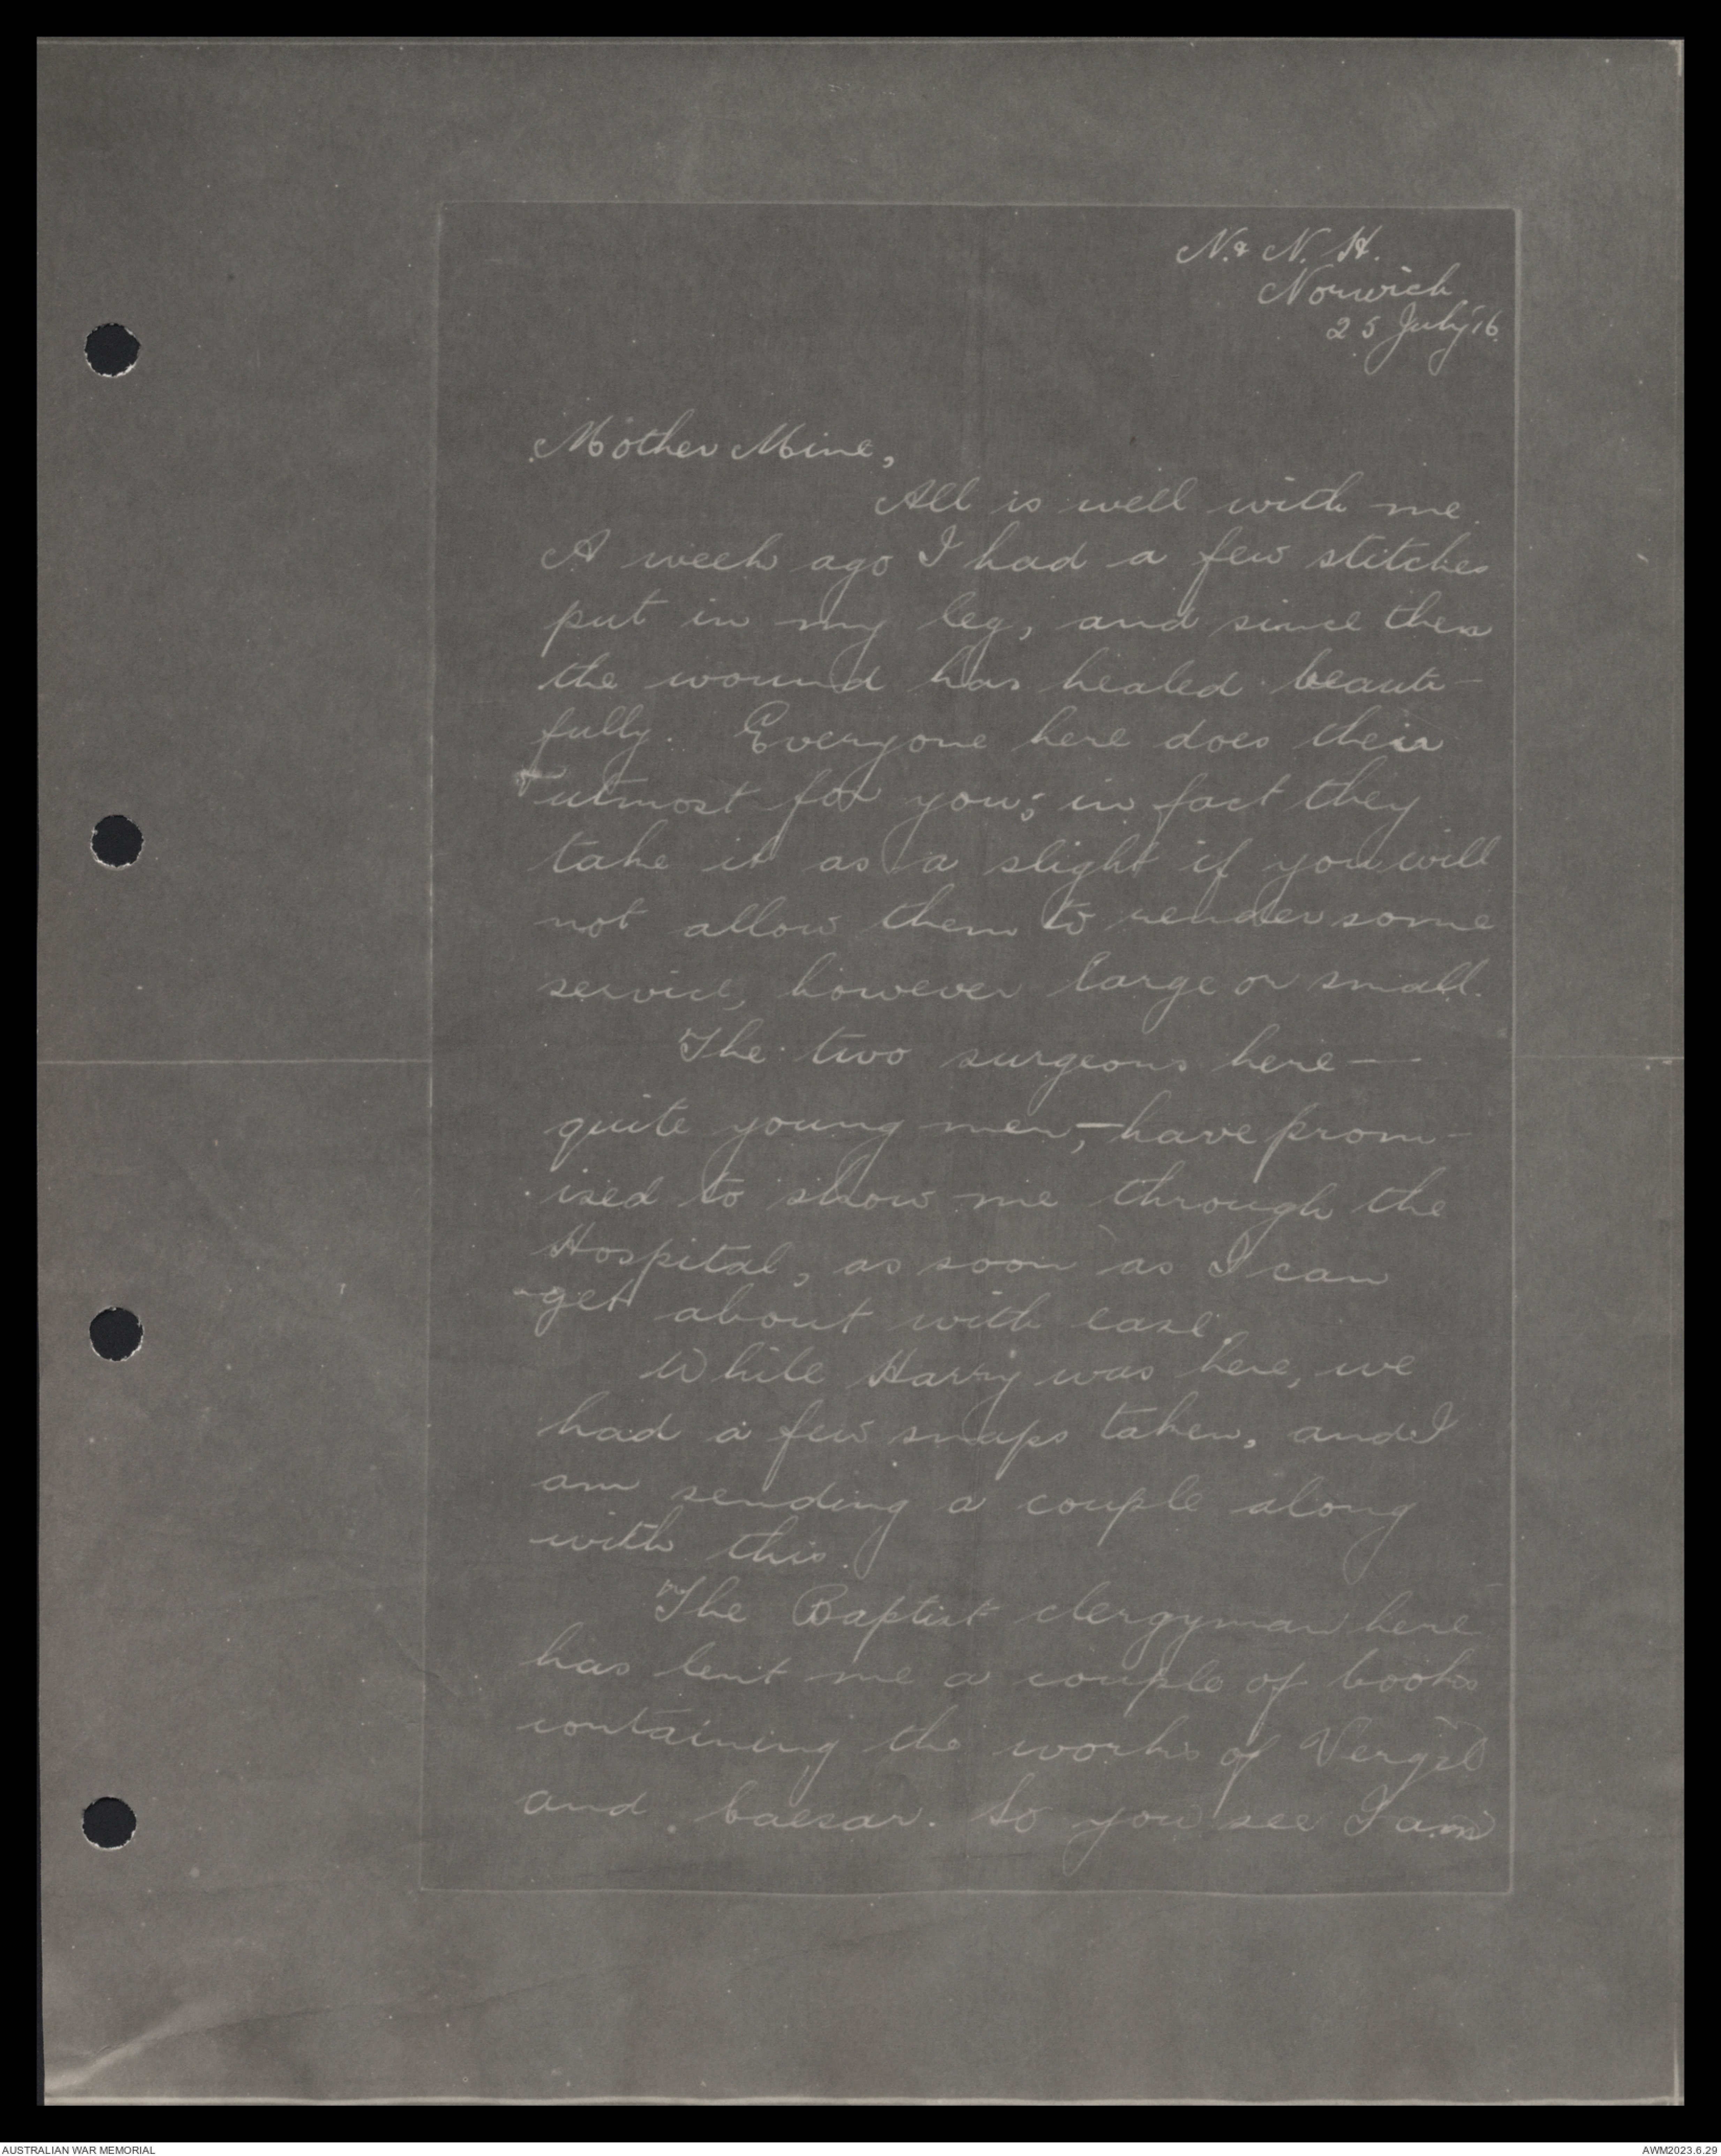 N. & N. H.
Norwich
25 July '16.
Mother Mine,
All is well with me.
A week ago I had a few stitches
put in my leg, and since then
the wound has healed beauti-
fully. Everyone here does their
utmost for you; in fact they
take it as a slight if you will
not allow them to render some
service, however large or small.
The two surgeons here —
quite young men, — have prom-
ised to show me through the
Hospital, as soon as I can
get about with ease.
While Harry was here, we
had a few snaps taken, and I
am sending a couple along
with this.
The Baptist clergyman here
has lent me a couple of books
containing the works of Vergil
and Caesar. So you see I am
AUSTRALIAN WAR MEMORIAL
AWM2023.6.29